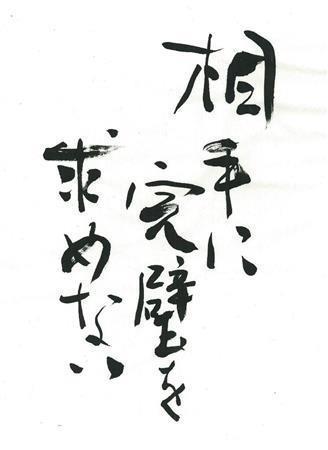 相手に
完璧を
求めない